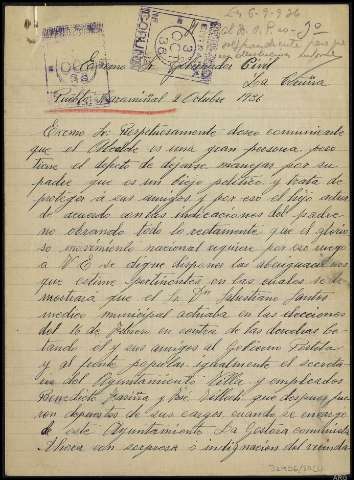 3 OCT 36
Excmo Sr Gobernador Civil
La Coruña
Puebla Caramiñal 2 Octubre 1936
Excmo Sr. Respetuosamente deseo comunicarle
que el Alcalde es una gran persona pero
tiene el defecto de dejarse manejar por su
padre que es un viejo politico y trata de
proteger a sus amigos y por eso el hijo actua
de acuerdo con las indicaciones del padre
no obrando todo lo rectamente que el glorio
so movimiento nacional requiere por eso ruego
a V.E. se digne disponer las abeiguaciones
que estime pertinentes en las cuales se de
mostrara que el Sr Dn Sebastiano Santos
medico municipal actuaba en las elecciones
del 16 de Febrero en contra de las derechas bo
tando él y sus amigos al Gobierno Portela
y al frente popular igualmente el secreta
rio del Ayuntamiento Villa y empleados
Benedicto Fariña y José que despues fue
ron depuestos de sus cargos cuando se encargo
de este Ayuntamiento La Gestora comunista
Ahora con sorpresa é indignacion del vecinda